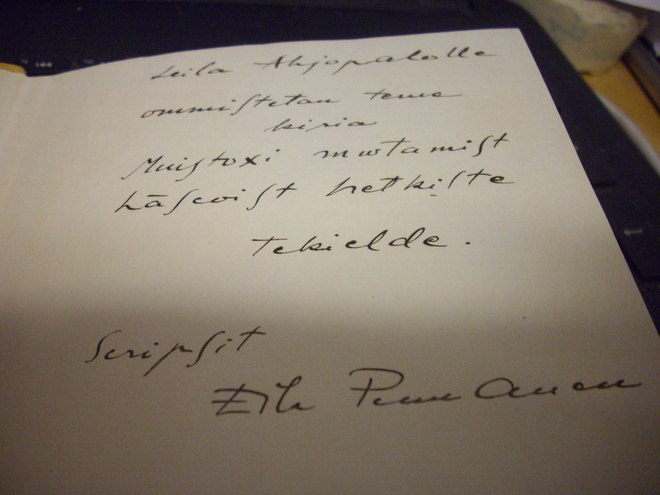 Leila Ahjopalolle
ommiſtetan teme
kiria
Muiſtoxi mwtamiſt
hetkiſte
tekielde.
Scripſit
Eila Pennanen